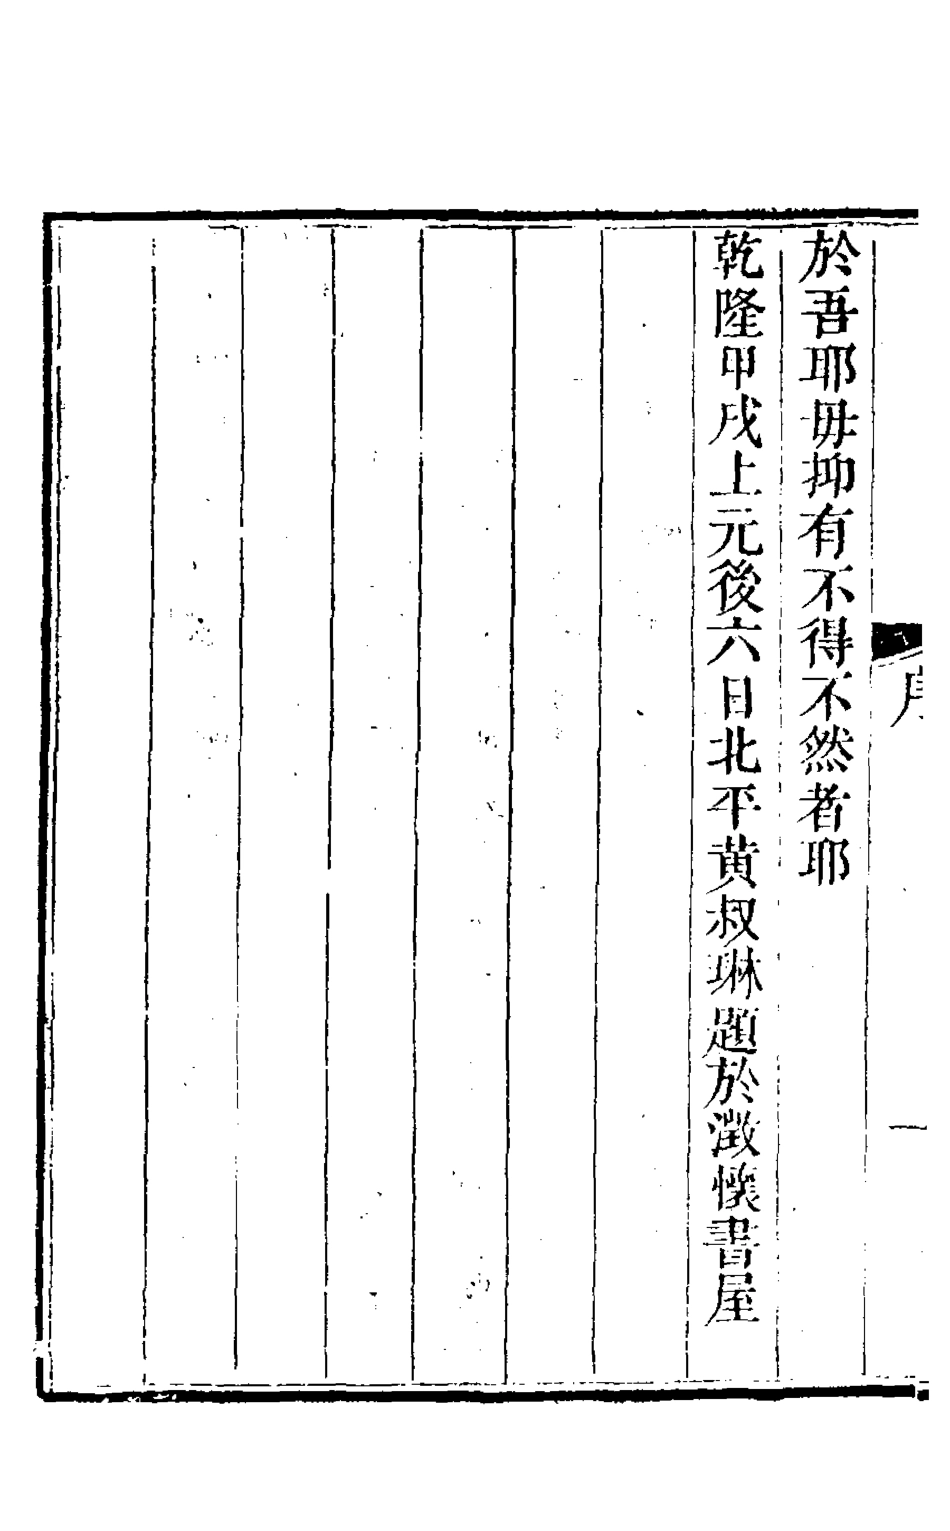 於吾耶毋抑有不得不然者耶
乾隆甲戌上元後六日北平黃叔琳題於澂懷書屋
序
一